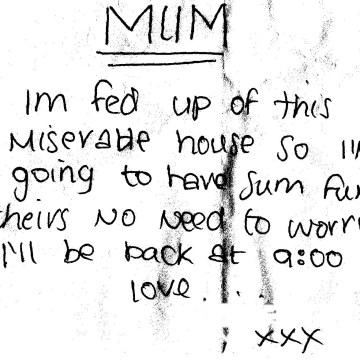 MUM
Im fed up of this
Miserable house so I'm
going to have sum fun
theirs NO Need to worry
I'll be back at 9:00
love...
xxx